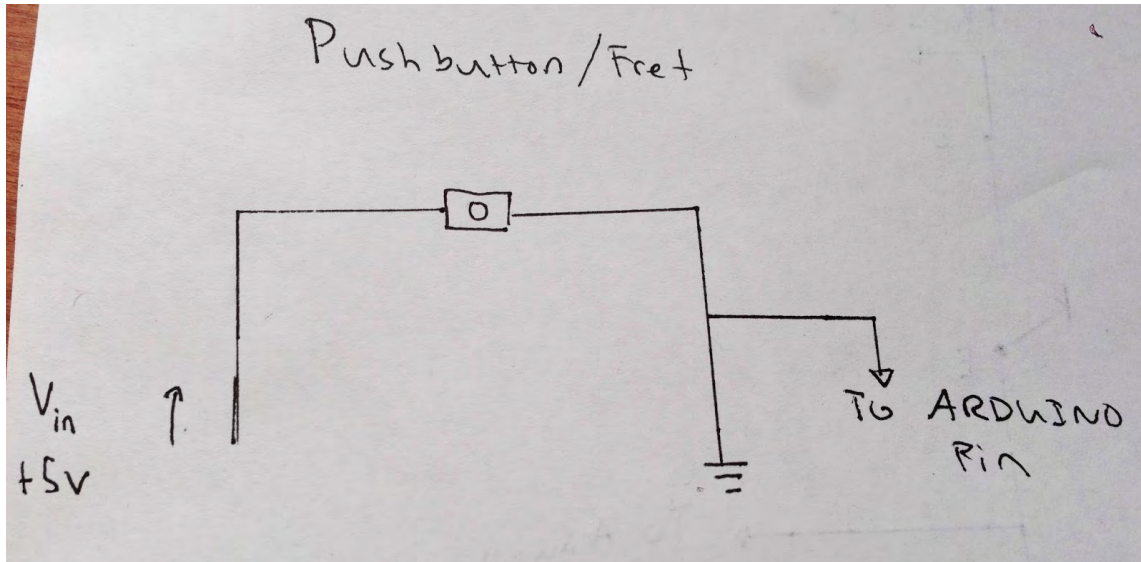 Pushbutton/Fret
Vin
+5v
To ARDUINO
Pin